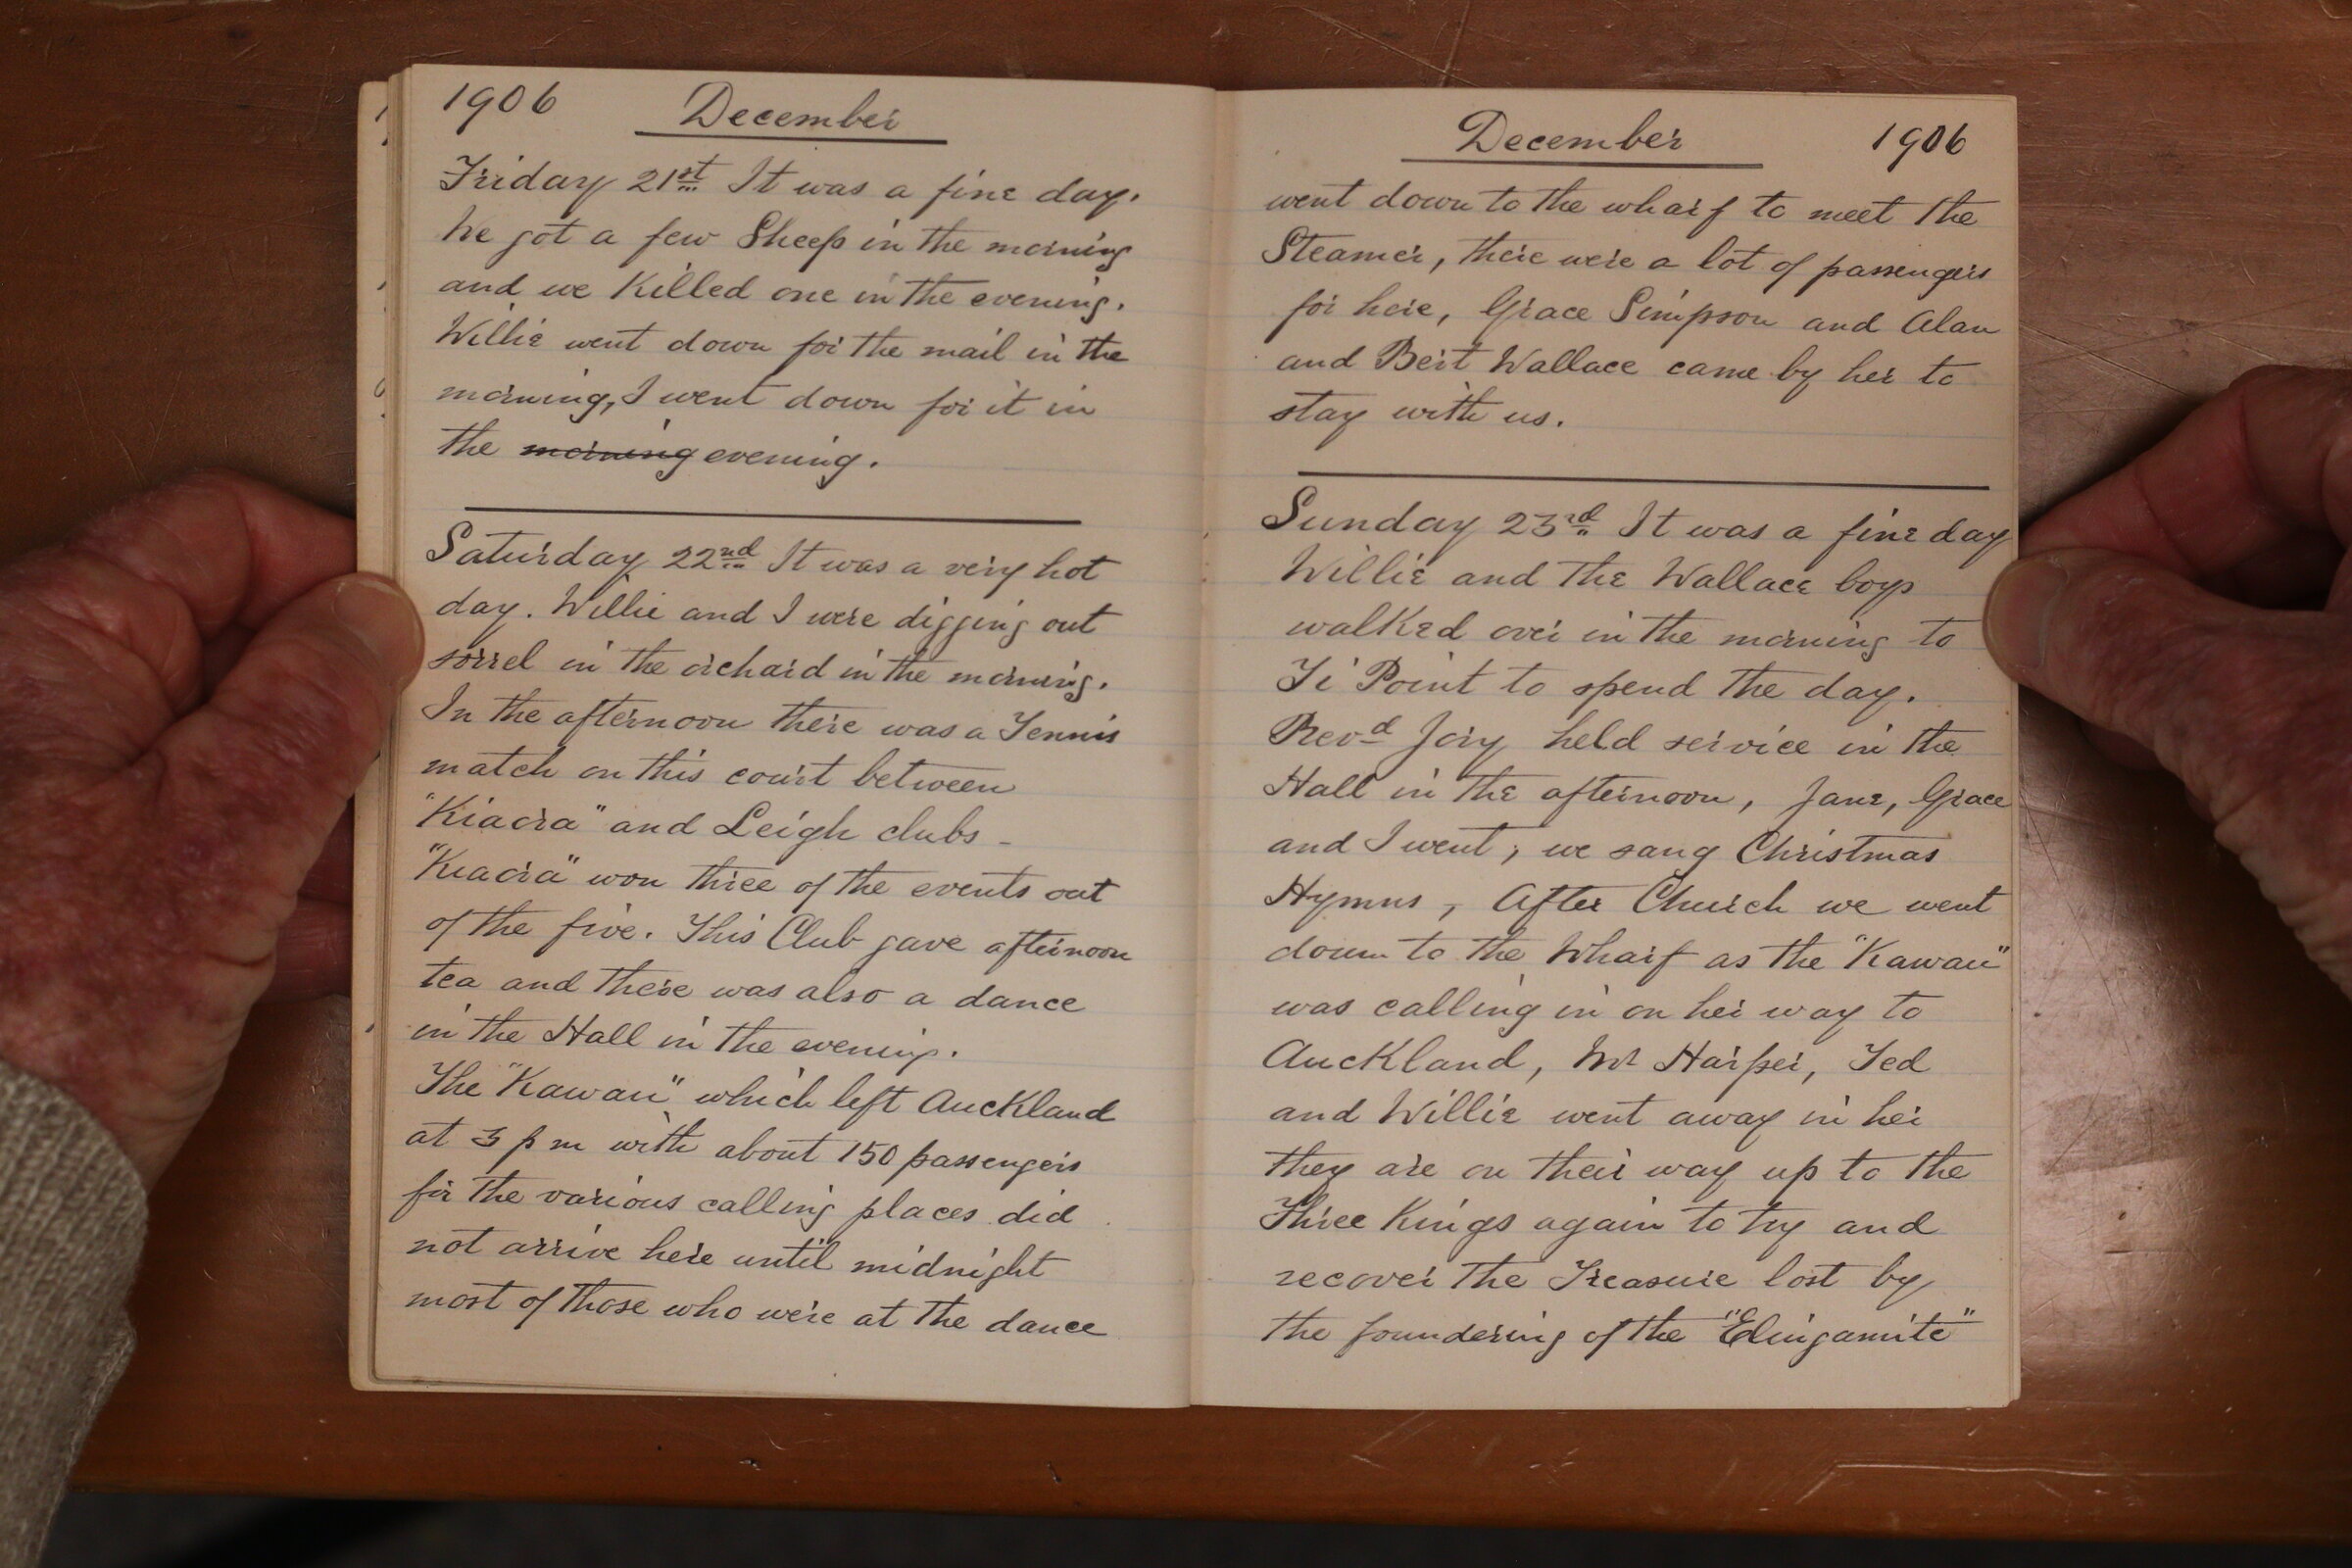 1906 December
Friday 21st It was a fine day.
We got a few Sheep in the morning
and we Killed one in the evening.
Willie went down for the mail in the
morning, I went down for it in
the morning evening.
Saturday 22nd It was a very hot
day. Willie and I were digging out
sorrel in the orchard in the morning.
In the afternoon there was a Tennis
match on this court between
"Kiaora" and Leigh clubs -
"Kiaora" won three of the events out
of the five. This Club gave afternoon
tea and there was also a dance
in the Hall in the evening.
The "Kawau" which left Auckland
at 3 p m with about 150 passengers
for the various calling places did
not arrive here until midnight
most of those who were at the dance
December 1906
went down to the wharf to meet the
Steamer, there were a lot of passengers
for here, Grace Simpson and Alan
and Bert Wallace came by her to
stay with us.
Sunday 23rd It was a fine day
Willie and the Wallace boys
walked over in the morning to
Ti Point to spend the day.
Revd Jory held service in the
Hall in the afternoon, Jane, Grace
and I went, we sang Christmas
Hymns, After Church we went
down to the Wharf as the "Kawau"
was calling in on her way to
Auckland, Mr Harper, Ted
and Willie went away in her
they are on their way up to the
Three Kings again to try and
recover the Treasure lost by
the foundering of the "Elingamite"